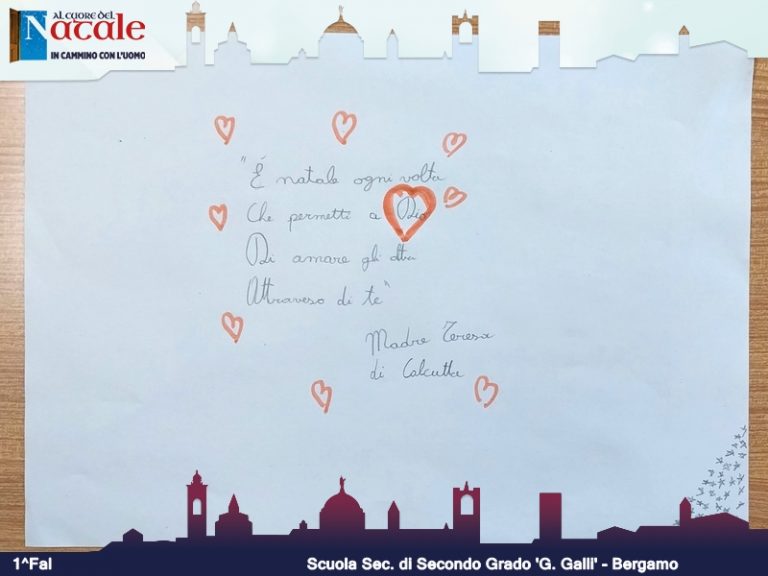 AL CUORE DEL
Natale
IN CAMMINO CON L'UOMO
"É natale ogni volta
Che permetti a Dio
Di amare gli altri
Attraveso di te"
Madre Teresa
di Calcutta
1^FaI
Scuola Sec. di Secondo Grado 'G. Galli' - Bergamo